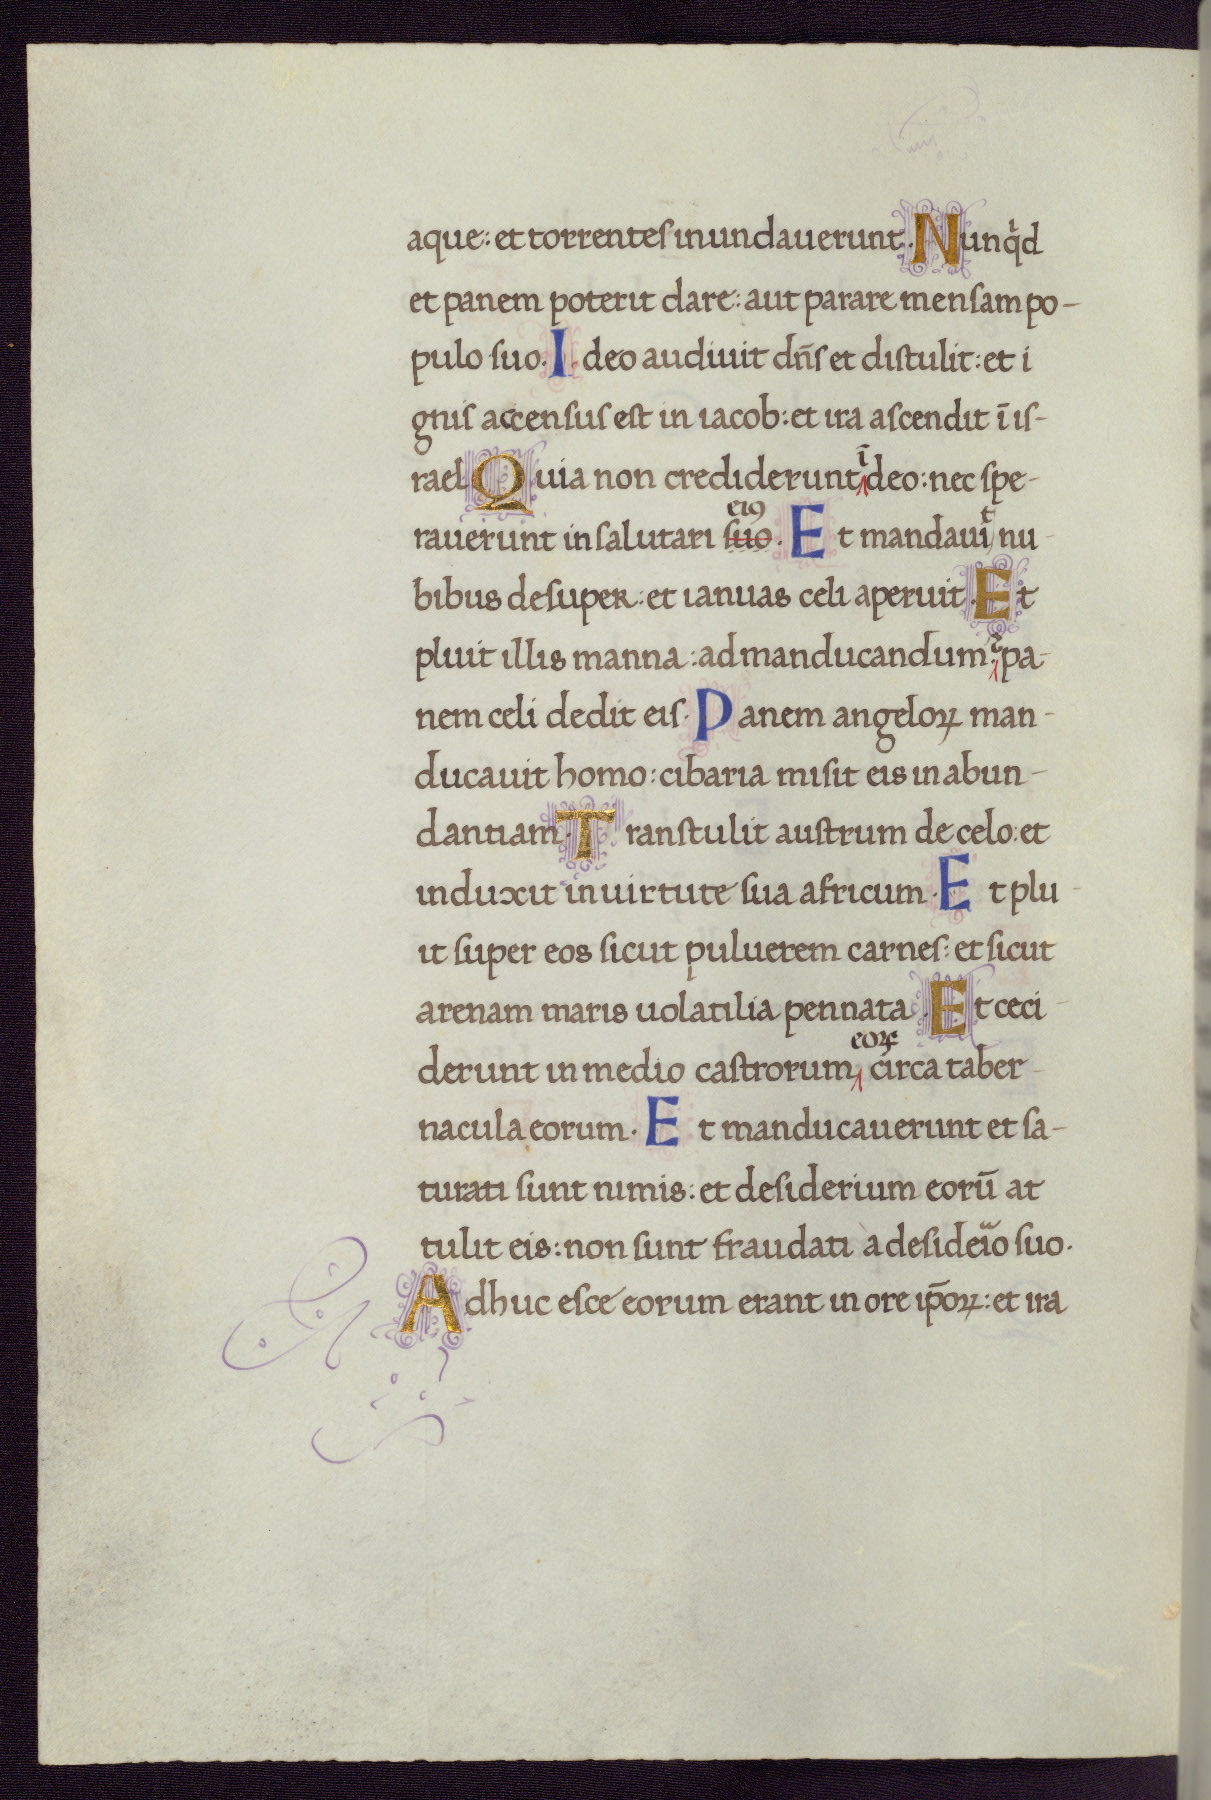 aque: et torrentes inundauerunt. Nunqͥd
et panem poterit dare: aut parare mensam po-
pulo suo. Ideo audiuit dn̄s et distulit: et i
gnis accensus est in iacob: et ira ascendit ī is-
rael Quia non crediderunt ī deo: nec spe-
rauerunt in salutari suo eiꝰ. Et mandauiͭ nu-
bibus desuper: et ianuas celi aperuit. Et
pluit illis manna: ad manducandum: et pa-
nem celi dedit eis. Panem angeloꝝ man-
ducauit homo: cibaria misit eis in abun-
dantiam. Transtulit austrum de celo: et
induxit in uirtute sua africum. Et plu-
it super eos sicut puluerem carnes: et sicut
arenam maris uolatilia pennata. Et ceci-
derunt in medio castrorum eoꝝ circa taber-
nacula eorum. Et manducauerunt et sa-
turati sunt nimis: et desiderium eorū at
tulit eis: non sunt fraudati a desideio suo.
Adhuc esce eorum erant in ore ip̄oꝝ: et ira